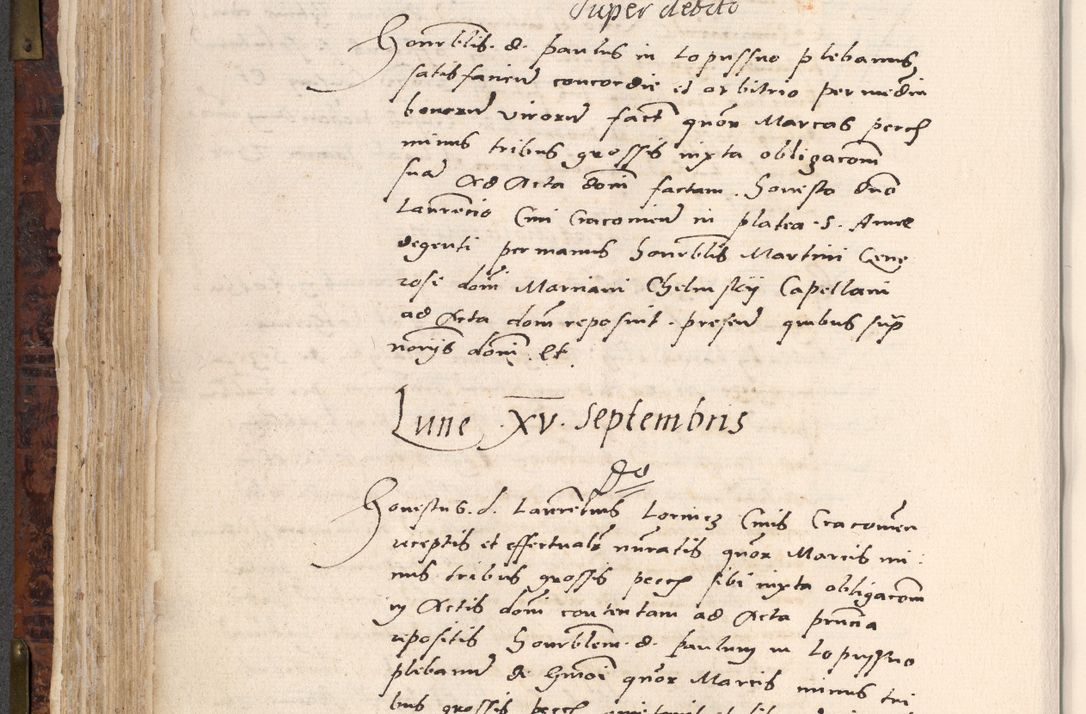 Super debito
Honrblis. d. paulus in Lopussno plebanus
satisfaciens concordie et arbitrio per mediu
bonorum virorum fact quor Marcas pecch
minus tribus grossis iuxta obligacom
sua Ad Acta domi factam. Honesto dno
Laurencio Civi Cracovien in platea S. Anne
degenti per manus honrblis Martini Gene
rosi domi Mariani Chelmskij Capellani
ad Acta dom reposuit. presen quibus sup
norijs domi. et.
Lune .XV. Septembris
Honestus. d. Laurentius Civis Cracovien
receptis et effectualr nuratis quor Marcis mi
nus tribus grossis pecch sibi iuxta obligacom
in Actis domi contentam ad Acta pruncia
repositis honrblem. d. paulum in Lopussno
plebanum de hmoi quor Marcis minus tri
bus grossis pecch